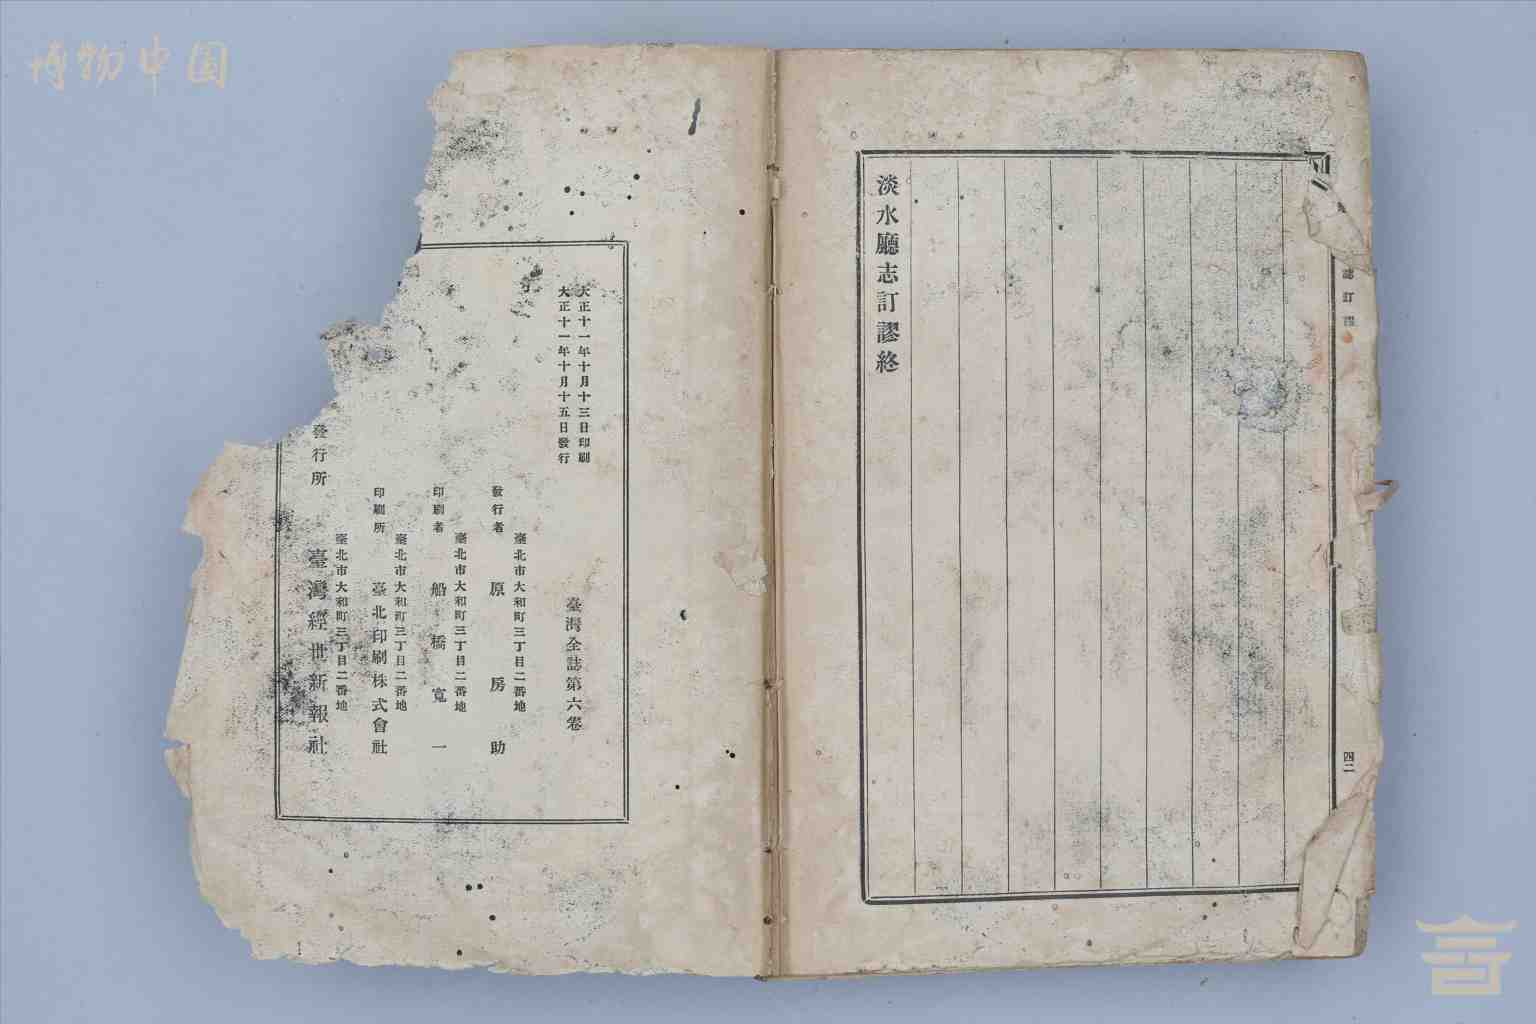 博物中国
淡水廳志訂謬終
誌訂謬
四二
大正十一年十月十三日印刷
大正十一年十月十五日發行
臺灣全誌第六卷
臺北市大和町三丁目二番地
發行者 原房助
臺北市大和町三丁目二番地
印刷者 船橋寬一
臺北市大和町三丁目二番地
印刷所 臺北印刷株式會社
臺北市大和町三丁目二番地
發行所 臺灣經世新報社